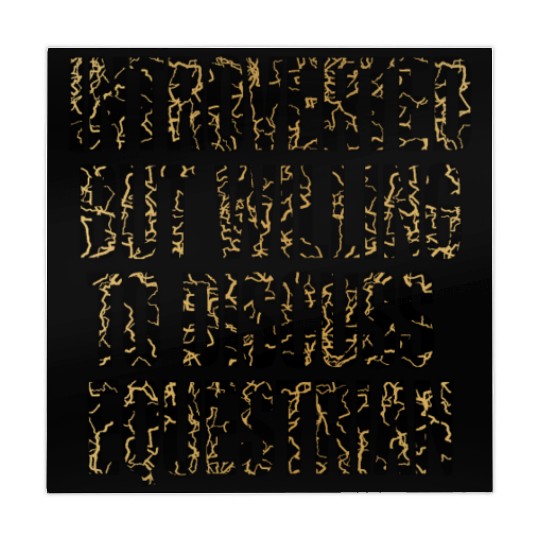 INTROVERTED
BUT WILLING
TO DISCUSS
EQUESTRIAN